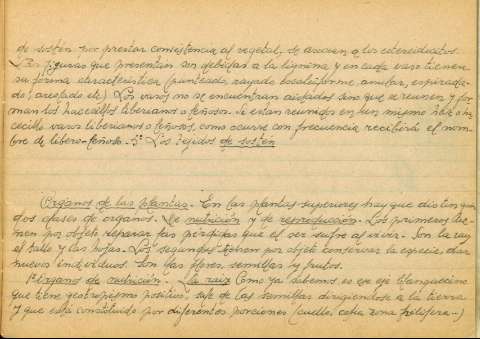 de sostén por prestar consistencia al vegetal, se asocian a los estereiductos.
Las figuras que presentan son debidas a la lignina y en cada vaso tienen
su forma característica (punteado, rayado escalariforme, anular, espirada-
do, areolado etc) Los vasos no se encuentran aislados sino que se reunen y for
man los hacecillos liberianos o leñosos. Si estan reunidos en un mismo hace
cecillo vasos liberianos o leñosos, como ocurre con frecuencia recibirá el nom-
bre de libero-leñoso. 5º Los tejidos de sostén
Organos de las plantas. En las plantas superiores hay que distinguir
dos clases de organos. De nutrición y de reproducción. Los primeros tie-
nen por objeto reparar las pérdidas que el ser sufre al vivir. Son la raiz
el tallo y las hojas. Los segundos tienen por objeto conservar la especie, dar
nuevos individuos. Son las flores, semillas y frutos.
1º Organos de nutrición. La raiz Como ya sabemos es ese eje blanquecino
que tiene geotropismo positivo, sale de las semillas dirigiendose a la tierra
y que está constituido por diferentes porciones (cuello, cofia zona pilifera...)